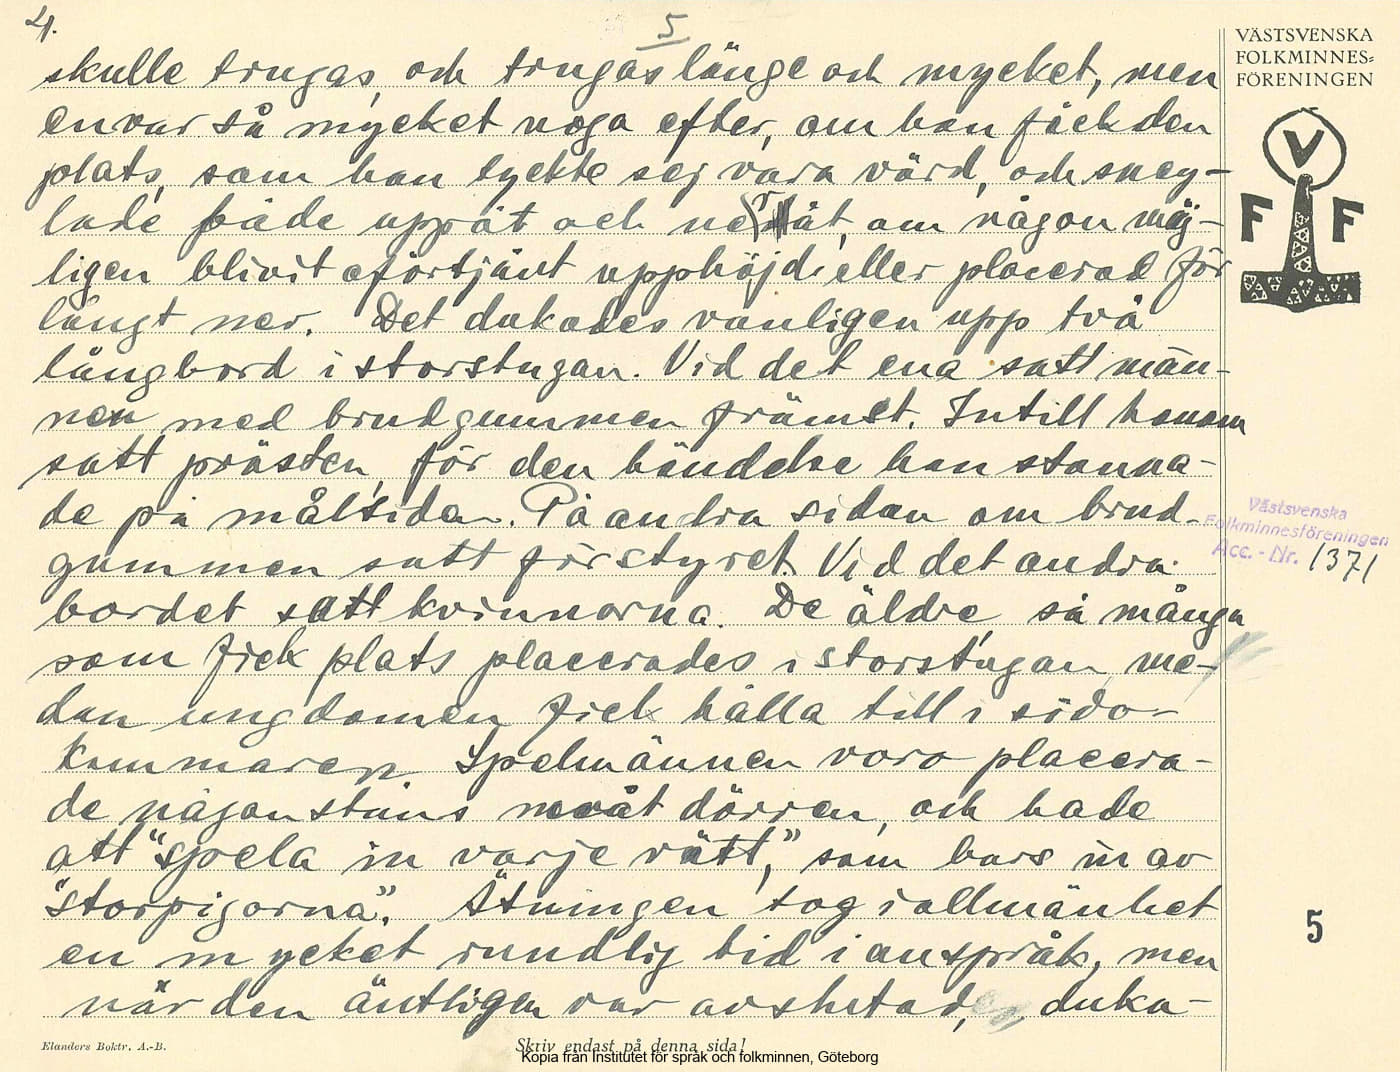 4.
5
skulle trugas, och trugas länge och mycket, men
envar så mycket noga efter, om han fick den
plats, som han tyckte sej vara värd, och sneg-
lade både uppåt och neråt, om någon möj-
ligen blivit oförtjänt upphöjd eller placerad för
långt ner. Det dukades vanligen upp två
långbord i storstugan. Vid det ena satt män-
nen med brudgummen främst. Intill honom
satt prästen, för den händelse han stanna-
de på måltiden. På andra sidan om brud-
gummen satt förstyret. Vid det andra
bordet satt kvinnorna. De äldre så många
som fick plats placerades i storstugan, me-
dan ungdomen fick hålla till i sido-
kammaren. Spelmännen voro placera-
de någonstans mot dörren, och hade
att "spela in varje rätt," som bars in av
"storpigorna". Ätningen tog i allmänhet
en mycket rundlig tid i anspråk, men
när den äntligen var avslutad, duka-
VÄSTSVENSKA
FOLKMINNES=
FÖRENINGEN
V
F F
Västsvenska
Folkminnesföreningen
Acc.-Nr. 1371
5
Elanders Boktr. A.-B.
Skriv endast på denna sida!
Kopia från Institutet för språk och folkminnen, Göteborg